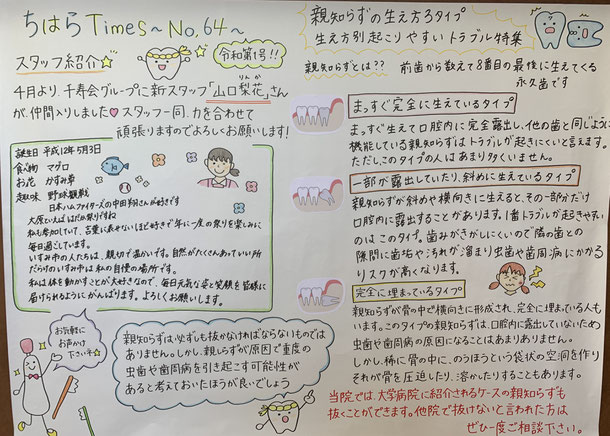 ちはらTimes〜No.64〜
令和第1号!!
スタッフ紹介
4月より、千寿会グループに新スタッフ「山口梨花」さん
りんか
が、仲間入りしました♡スタッフ一同、力を合わせて
頑張りますのでよろしくお願いします!
誕生日 平成12年5月3日
食べ物 マグロ
お花 かすみ草
趣味 野球観戦
日本ハムファイターズの中田翔さんが好きです
大原といえばはだか祭りですね
私も参加していて、言葉に表せないほど好きで年に一度の祭りを楽しみに
毎日過ごしています。
いすみ市の人たちは、親切で温かいです。自然がたくさんあっていい所
だらけのいすみ市は私の自慢の場所です。
私は体を動かすことが大好きなので、毎日元気な姿と笑顔を皆様に
届けられるようにがんばります。よろしくお願いします。
お気軽に
お声掛け
下さい
親知らずは必ずも抜かなければならないものでは
ありません。しかし、親しらずが原因で重度の
虫歯や歯周病を引き起こす可能性が
あると考えておいたほうが良いでしょう
親知らずの生え方3タイプ
生え方別起こりやすいトラブル特集
親知らずとは?? 前歯から数えて8番目の最後に生えてくる
永久歯です
まっすぐ完全に生えているタイプ
まっすぐ生えて口腔内に完全露出し、他の歯と同じように
機能している親知らずはトラブルが起きにくいと言えます。
ただしこのタイプの人はあまり多くいません。
一部が露出していたり、斜めに生えているタイプ
親知らずが斜めや横向きに生えると、その一部分だけ
口腔内に露出することがあります。1番トラブルが起きやすい
のはこのタイプ。歯みがきがしにくいので隣の歯との
隙間に歯垢や汚れが溜まり虫歯や歯周病にかかる
リスクが高くなります。
完全に埋まっているタイプ
親知らずが骨の中で横向きに形成され、完全に埋まっている人も
います。このタイプの親知らずは、口腔内に露出していないため
虫歯や歯周病の原因になることはあまりありません。
しかし、稀に骨の中に、のうほうという袋状の空洞を作り
それが骨を圧迫したり、溶かしたりすることもあります。
当院では、大学病院に紹介されるケースの親知らずも
抜くことができます。他院で抜けないと言われた方は
ぜひ一度ご相談下さい。